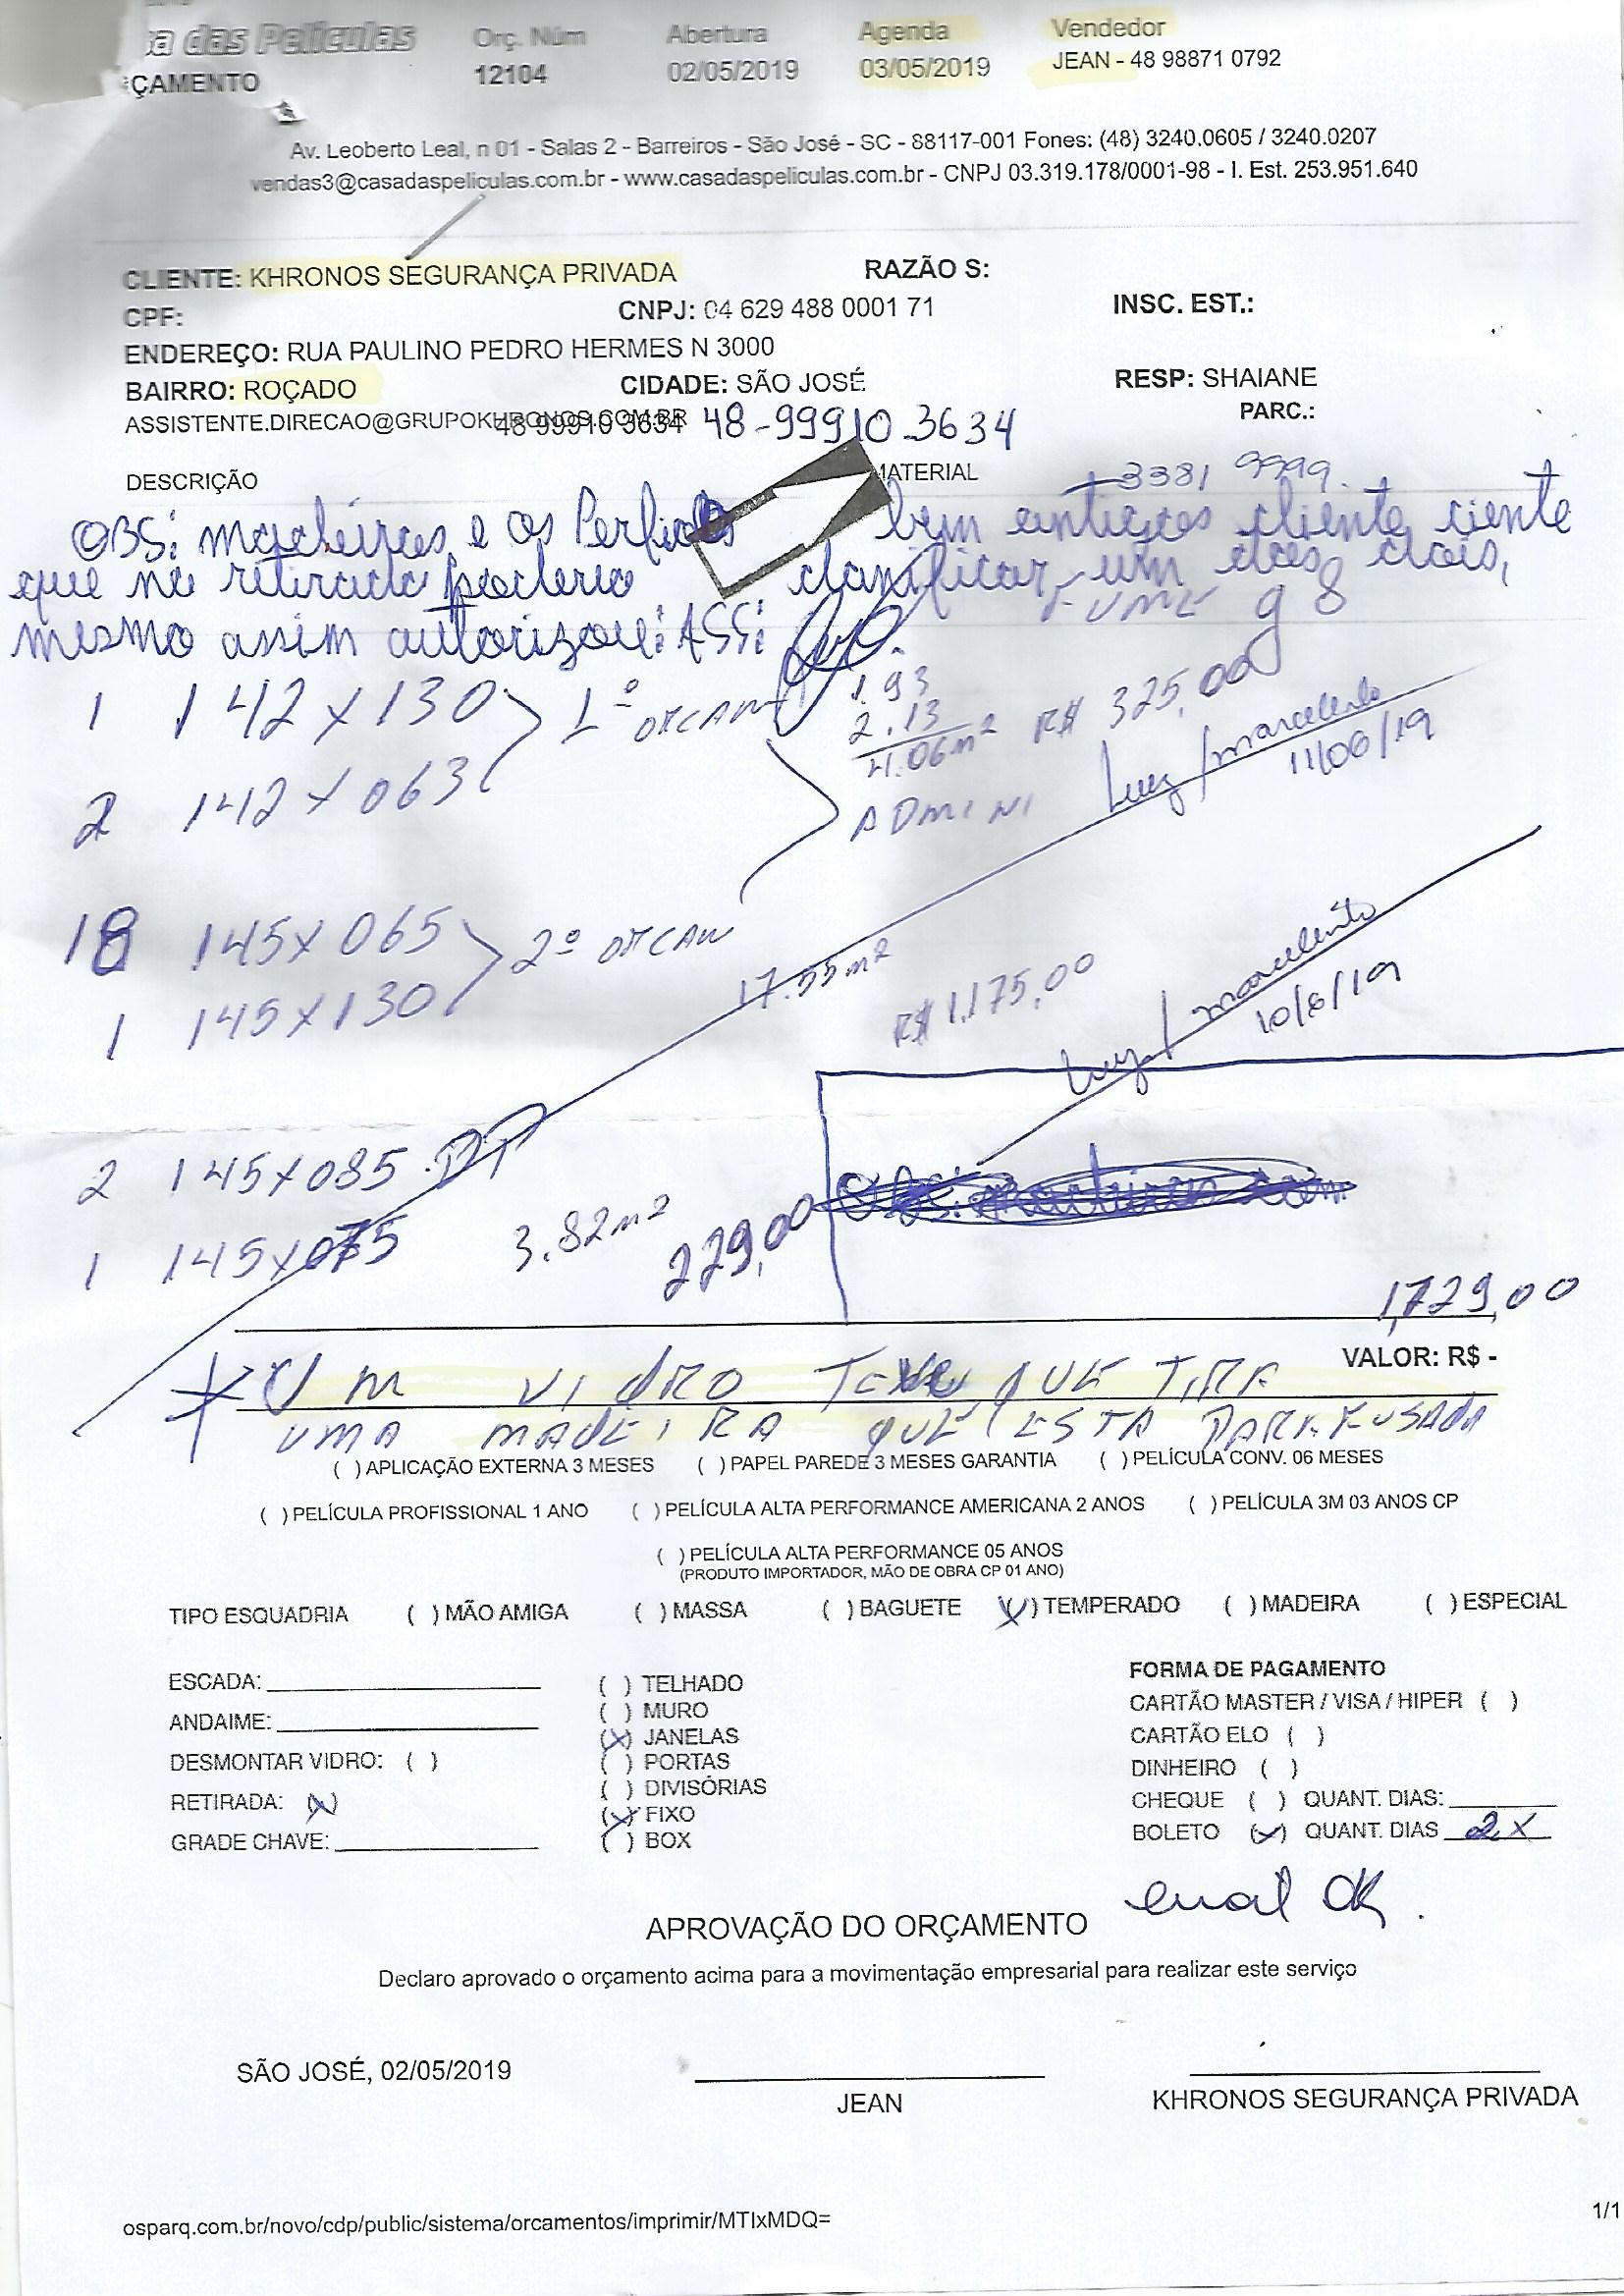 a das Películas Orç. Núm Abertura Agenda Vendedor
ÇAMENTO 12104 02/05/2019 03/05/2019 JEAN - 48 98871 0792
Av. Leoberto Leal, n 01 - Salas 2 - Barreiros - São José - SC - 88117-001 Fones: (48) 3240.0605 / 3240.0207
vendas3@casadaspeliculas.com.br - www.casadaspeliculas.com.br - CNPJ 03.319.178/0001-98 - I. Est. 253.951.640
CLIENTE: KHRONOS SEGURANÇA PRIVADA RAZÃO S:
CPF: CNPJ: 04 629 488 0001 71 INSC. EST.:
ENDEREÇO: RUA PAULINO PEDRO HERMES N 3000
BAIRRO: ROÇADO CIDADE: SÃO JOSÉ RESP: SHAIANE
ASSISTENTE.DIRECAO@GRUPOKHRONOS.COM.BR 48 99910 3634 48-99910-3634 PARC.:
DESCRIÇÃO MATERIAL 3381 9999.
OBS: madeiras e os Perfis bem antigos cliente ciente
que na retirada poderia danificar um dos dois,
FUME g8
mesmo assim autorizou: ASS:
1 142 x 130 1º ORCAM 1.93
2.13
4.06m² R$ 325,00
2 142 x 063 ADMINI Luiz / marcelinho
11/06/19
18 145 x 065 2º ORCAM
17.55m² R$ 1.175,00 Luiz / marcelinho
1 145 x 130 10/6/19
2 145 x 085 DP
1 145 x 075 3.82m² 229,00
1,729,00
VALOR: R$ -
* UM VIDRO TEVE QUE TIRA
UMA MADEIRA QUE ESTA PARAFUSADA
( ) APLICAÇÃO EXTERNA 3 MESES ( ) PAPEL PAREDE 3 MESES GARANTIA ( ) PELÍCULA CONV. 06 MESES
( ) PELÍCULA PROFISSIONAL 1 ANO ( ) PELÍCULA ALTA PERFORMANCE AMERICANA 2 ANOS ( ) PELÍCULA 3M 03 ANOS CP
( ) PELÍCULA ALTA PERFORMANCE 05 ANOS
(PRODUTO IMPORTADOR, MÃO DE OBRA CP 01 ANO)
TIPO ESQUADRIA ( ) MÃO AMIGA ( ) MASSA ( ) BAGUETE (X) TEMPERADO ( ) MADEIRA ( ) ESPECIAL
ESCADA: ( ) TELHADO FORMA DE PAGAMENTO
( ) MURO CARTÃO MASTER / VISA / HIPER ( )
ANDAIME: (X) JANELAS CARTÃO ELO ( )
DESMONTAR VIDRO: ( ) ( ) PORTAS DINHEIRO ( )
( ) DIVISÓRIAS
RETIRADA: (X) (X) FIXO CHEQUE ( ) QUANT. DIAS:
GRADE CHAVE: ( ) BOX BOLETO (X) QUANT. DIAS 2x
email OK.
APROVAÇÃO DO ORÇAMENTO
Declaro aprovado o orçamento acima para a movimentação empresarial para realizar este serviço
SÃO JOSÉ, 02/05/2019
JEAN KHRONOS SEGURANÇA PRIVADA
osparq.com.br/novo/cdp/public/sistema/orcamentos/imprimir/MTIxMDQ= 1/1